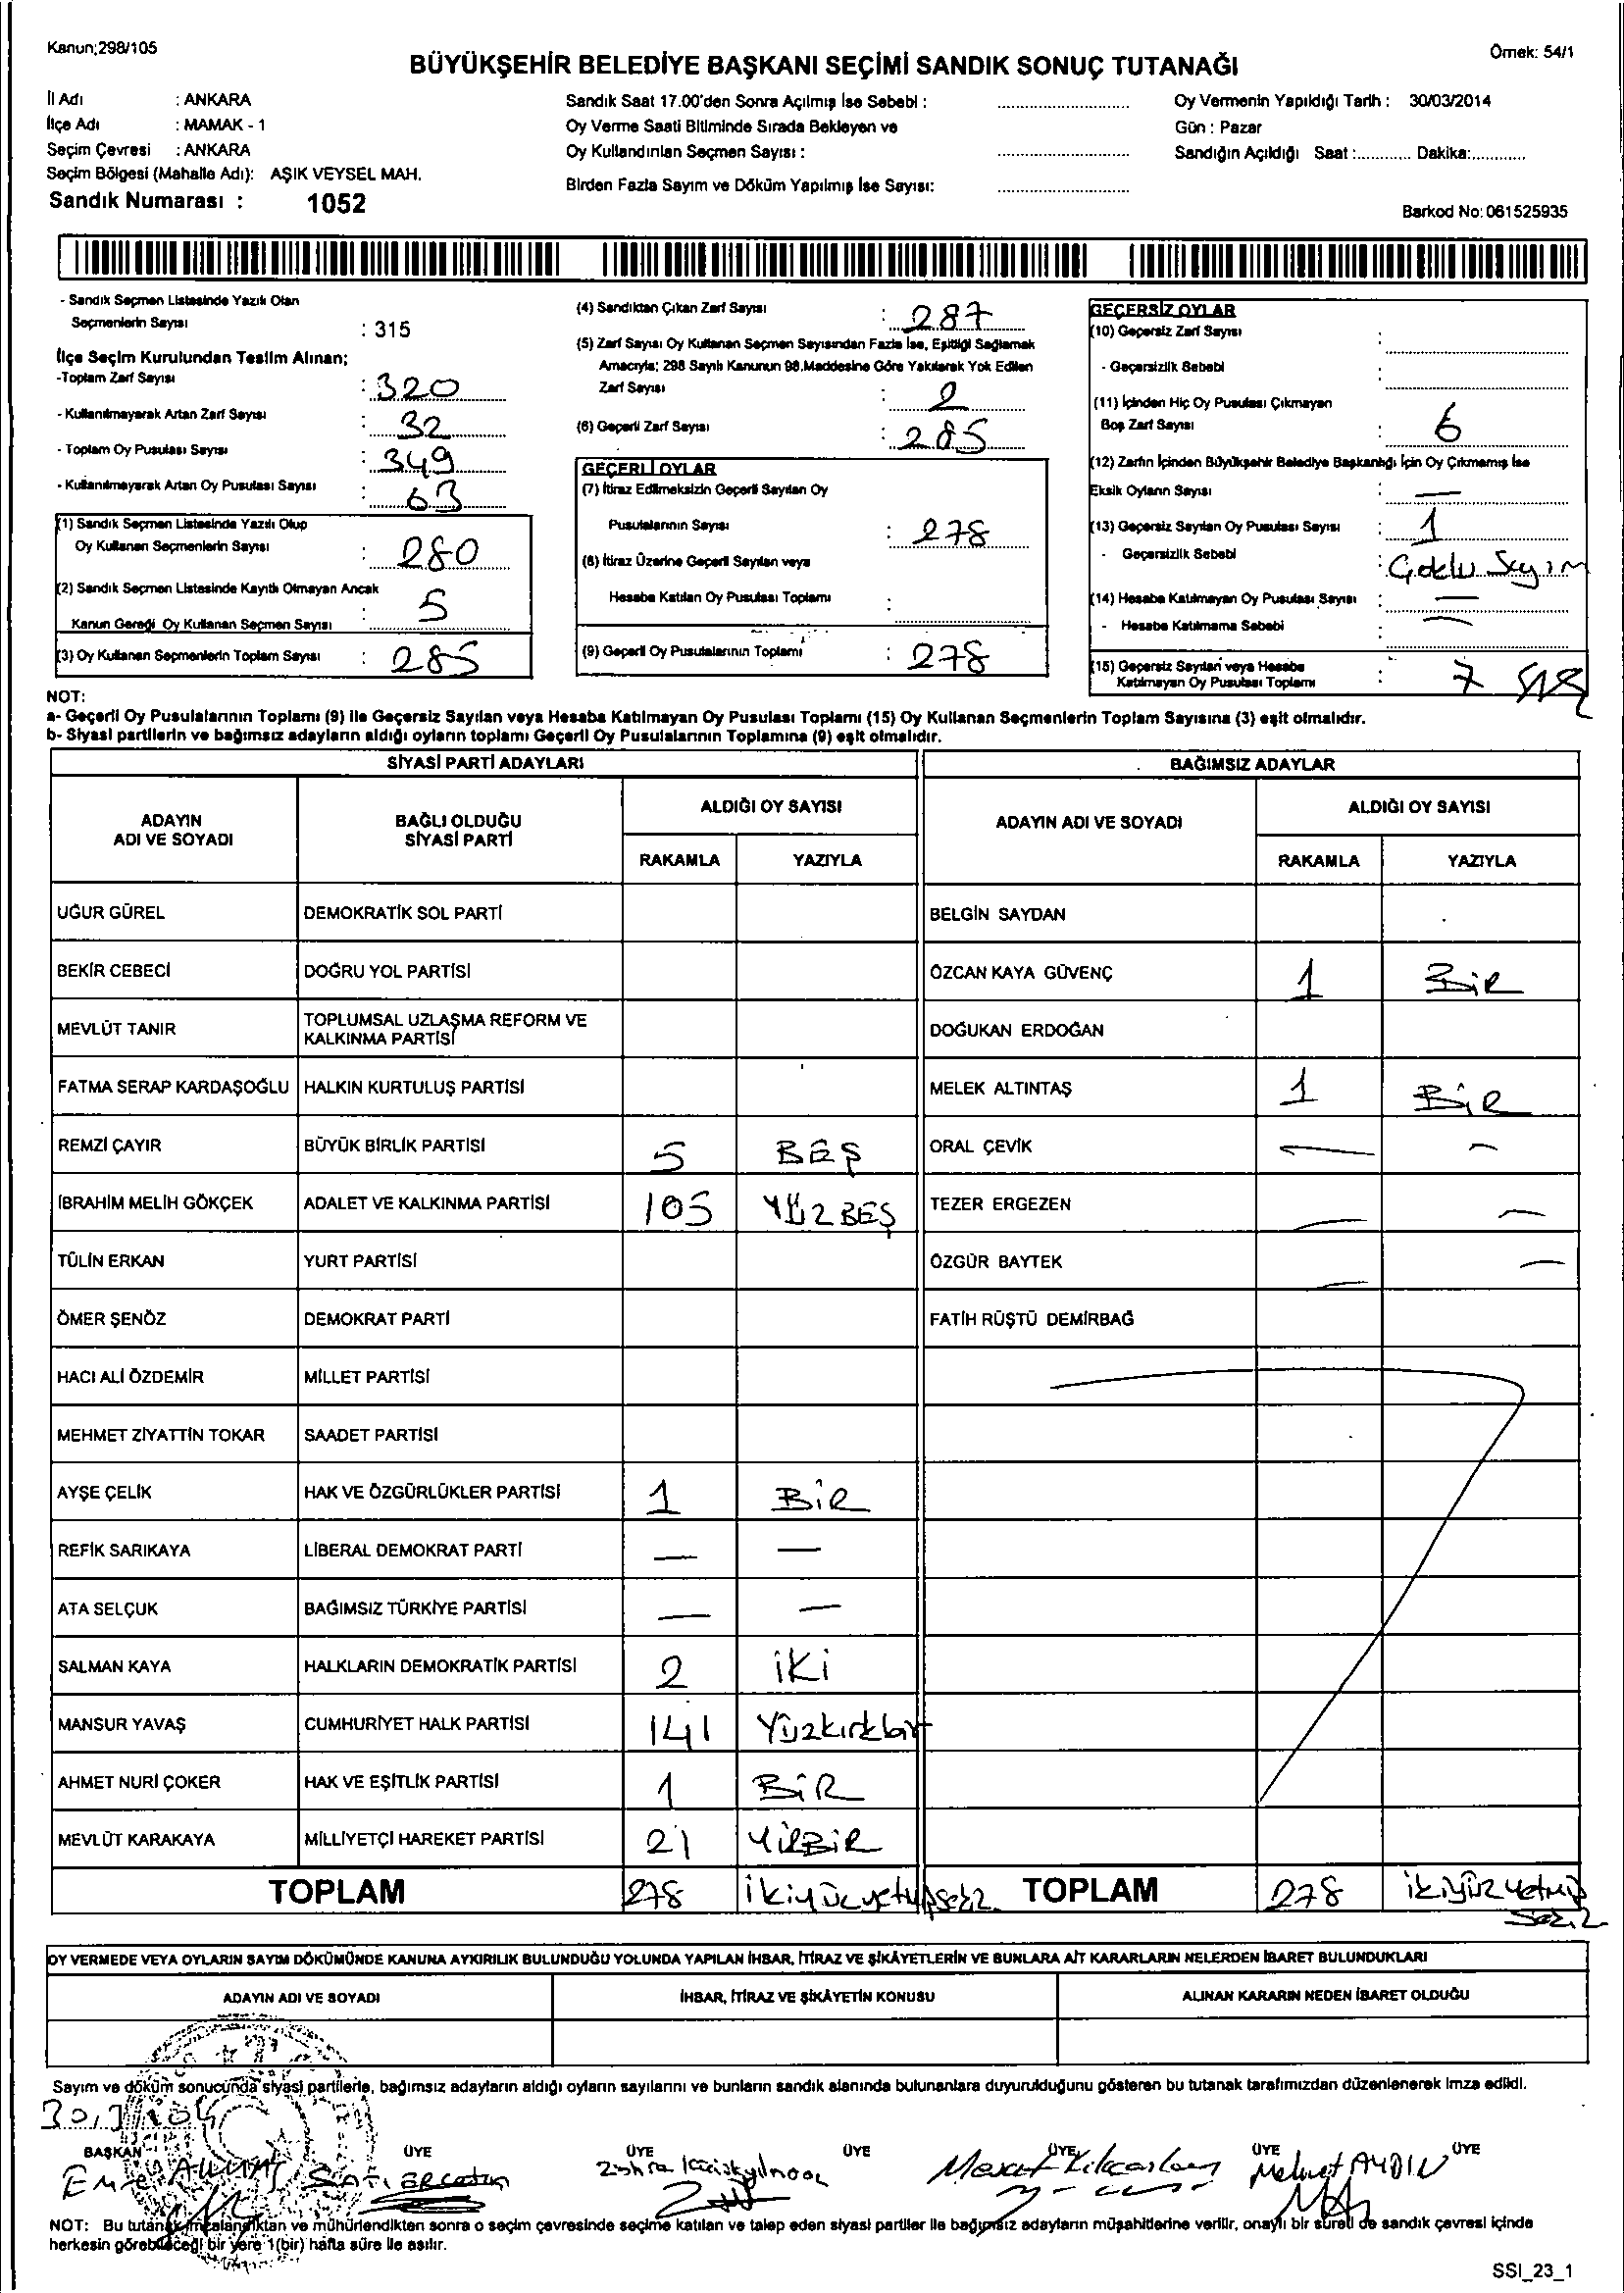 Kanun;298/105
Örnek: 54/1
BÜYÜKŞEHİR BELEDİYE BAŞKANI SEÇİMİ SANDIK SONUÇ TUTANAĞI
İl Adı : ANKARA
İlçe Adı : MAMAK - 1
Seçim Çevresi : ANKARA
Seçim Bölgesi (Mahalle Adı): AŞIK VEYSEL MAH.
Sandık Numarası : 1052
Sandık Saat 17.00'den Sonra Açılmış İse Sebebi :
Oy Verme Saati Bitiminde Sırada Bekleyen ve
Oy Kullandırılan Seçmen Sayısı :
Birden Fazla Sayım ve Döküm Yapılmış İse Sayısı:
Oy Vermenin Yapıldığı Tarih : 30/03/2014
Gün : Pazar
Sandığın Açıldığı Saat :............ Dakika:............
Barkod No: 061525935
- Sandık Seçmen Listesinde Yazılı Olan
Seçmenlerin Sayısı : 315
İlçe Seçim Kurulundan Teslim Alınan;
-Toplam Zarf Sayısı : 320
- Kullanılmayarak Artan Zarf Sayısı : 32
- Toplam Oy Pusulası Sayısı : 349
- Kullanılmayarak Artan Oy Pusulası Sayısı : 63
(1) Sandık Seçmen Listesinde Yazılı Olup
Oy Kullanan Seçmenlerin Sayısı : 280
(2) Sandık Seçmen Listesinde Kayıtlı Olmayan Ancak
Kanun Gereği Oy Kullanan Seçmen Sayısı 5
(3) Oy Kullanan Seçmenlerin Toplam Sayısı : 285
(4) Sandıktan Çıkan Zarf Sayısı : 287
(5) Zarf Sayısı Oy Kullanan Seçmen Sayısından Fazla İse, Eşitliği Sağlamak
Amacıyla; 298 Sayılı Kanunun 98.Maddesine Göre Yakılarak Yok Edilen
Zarf Sayısı : 2
(6) Geçerli Zarf Sayısı : 285
GEÇERLİ OYLAR
(7) İtiraz Edilmeksizin Geçerli Sayılan Oy
Pusulalarının Sayısı : 278
(8) İtiraz Üzerine Geçerli Sayılan veya
Hesaba Katılan Oy Pusulası Toplamı :
(9) Geçerli Oy Pusulalarının Toplamı : 278
GEÇERSİZ OYLAR
(10) Geçersiz Zarf Sayısı :
- Geçersizlik Sebebi :
(11) İçinden Hiç Oy Pusulası Çıkmayan
Boş Zarf Sayısı : 6
(12) Zarfın İçinden Büyükşehir Belediye Başkanlığı İçin Oy Çıkmamış İse
Eksik Oyların Sayısı : —
(13) Geçersiz Sayılan Oy Pusulası Sayısı : 1
- Geçersizlik Sebebi :
(14) Hesaba Katılmayan Oy Pusulası Sayısı : —
- Hesaba Katılmama Sebebi : —
(15) Geçersiz Sayılan veya Hesaba
Katılmayan Oy Pusulası Toplamı : 7
NOT:
a- Geçerli Oy Pusulalarının Toplamı (9) ile Geçersiz Sayılan veya Hesaba Katılmayan Oy Pusulası Toplamı (15) Oy Kullanan Seçmenlerin Toplam Sayısına (3) eşit olmalıdır.
b- Siyasi partilerin ve bağımsız adayların aldığı oyların toplamı Geçerli Oy Pusulalarının Toplamına (9) eşit olmalıdır.
SİYASİ PARTİ ADAYLARI
BAĞIMSIZ ADAYLAR
ADAYIN ADI VE SOYADI
BAĞLI OLDUĞU SİYASİ PARTİ
ALDIĞI OY SAYISI
RAKAMLA YAZIYLA
ADAYIN ADI VE SOYADI
ALDIĞI OY SAYISI
RAKAMLA YAZIYLA
UĞUR GÜREL DEMOKRATİK SOL PARTİ BELGİN SAYDAN
BEKİR CEBECİ DOĞRU YOL PARTİSİ ÖZCAN KAYA GÜVENÇ 1 BİR
MEVLÜT TANIR TOPLUMSAL UZLAŞMA REFORM VE KALKINMA PARTİSİ DOĞUKAN ERDOĞAN
FATMA SERAP KARDAŞOĞLU HALKIN KURTULUŞ PARTİSİ MELEK ALTINTAŞ 1 BİR
REMZİ ÇAYIR BÜYÜK BİRLİK PARTİSİ 5 BEŞ ORAL ÇEVİK — —
İBRAHİM MELİH GÖKÇEK ADALET VE KALKINMA PARTİSİ 105 YÜZBEŞ TEZER ERGEZEN — —
TÜLİN ERKAN YURT PARTİSİ ÖZGÜR BAYTEK — —
ÖMER ŞENÖZ DEMOKRAT PARTİ FATİH RÜŞTÜ DEMİRBAĞ
HACI ALİ ÖZDEMİR MİLLET PARTİSİ
MEHMET ZİYATTİN TOKAR SAADET PARTİSİ
AYŞE ÇELİK HAK VE ÖZGÜRLÜKLER PARTİSİ 1 BİR
REFİK SARIKAYA LİBERAL DEMOKRAT PARTİ — —
ATA SELÇUK BAĞIMSIZ TÜRKİYE PARTİSİ — —
SALMAN KAYA HALKLARIN DEMOKRATİK PARTİSİ 2 iKi
MANSUR YAVAŞ CUMHURİYET HALK PARTİSİ 141 Yüzkırkbir
AHMET NURİ ÇOKER HAK VE EŞİTLİK PARTİSİ 1 BİR
MEVLÜT KARAKAYA MİLLİYETÇİ HAREKET PARTİSİ 21 YİRBİR
TOPLAM 278 TOPLAM 278
OY VERMEDE VEYA OYLARIN SAYIM DÖKÜMÜNDE KANUNA AYKIRILIK BULUNDUĞU YOLUNDA YAPILAN İHBAR, İTİRAZ VE ŞİKÂYETLERİN VE BUNLARA AİT KARARLARIN NELERDEN İBARET BULUNDUKLARI
ADAYIN ADI VE SOYADI İHBAR, İTİRAZ VE ŞİKÂYETİN KONUSU ALINAN KARARIN NEDEN İBARET OLDUĞU
Sayım ve döküm sonucunda siyasi partilerle, bağımsız adayların aldığı oyların sayılarını ve bunların sandık alanında bulunanlara duyurulduğunu gösteren bu tutanak tarafımızdan düzenlenerek imza edildi.
BAŞKAN ÜYE ÜYE ÜYE ÜYE ÜYE ÜYE
Mehmet AYDIN
NOT: Bu tutanak imzalandıktan ve mühürlendikten sonra o seçim çevresinde seçime katılan ve talep eden siyasi partiler ile bağımsız adayların müşahitlerine verilir, onaylı bir sureti de sandık çevresi içinde
herkesin görebileceği bir yere 1(bir) hafta süre ile asılır.
SSI_23_1